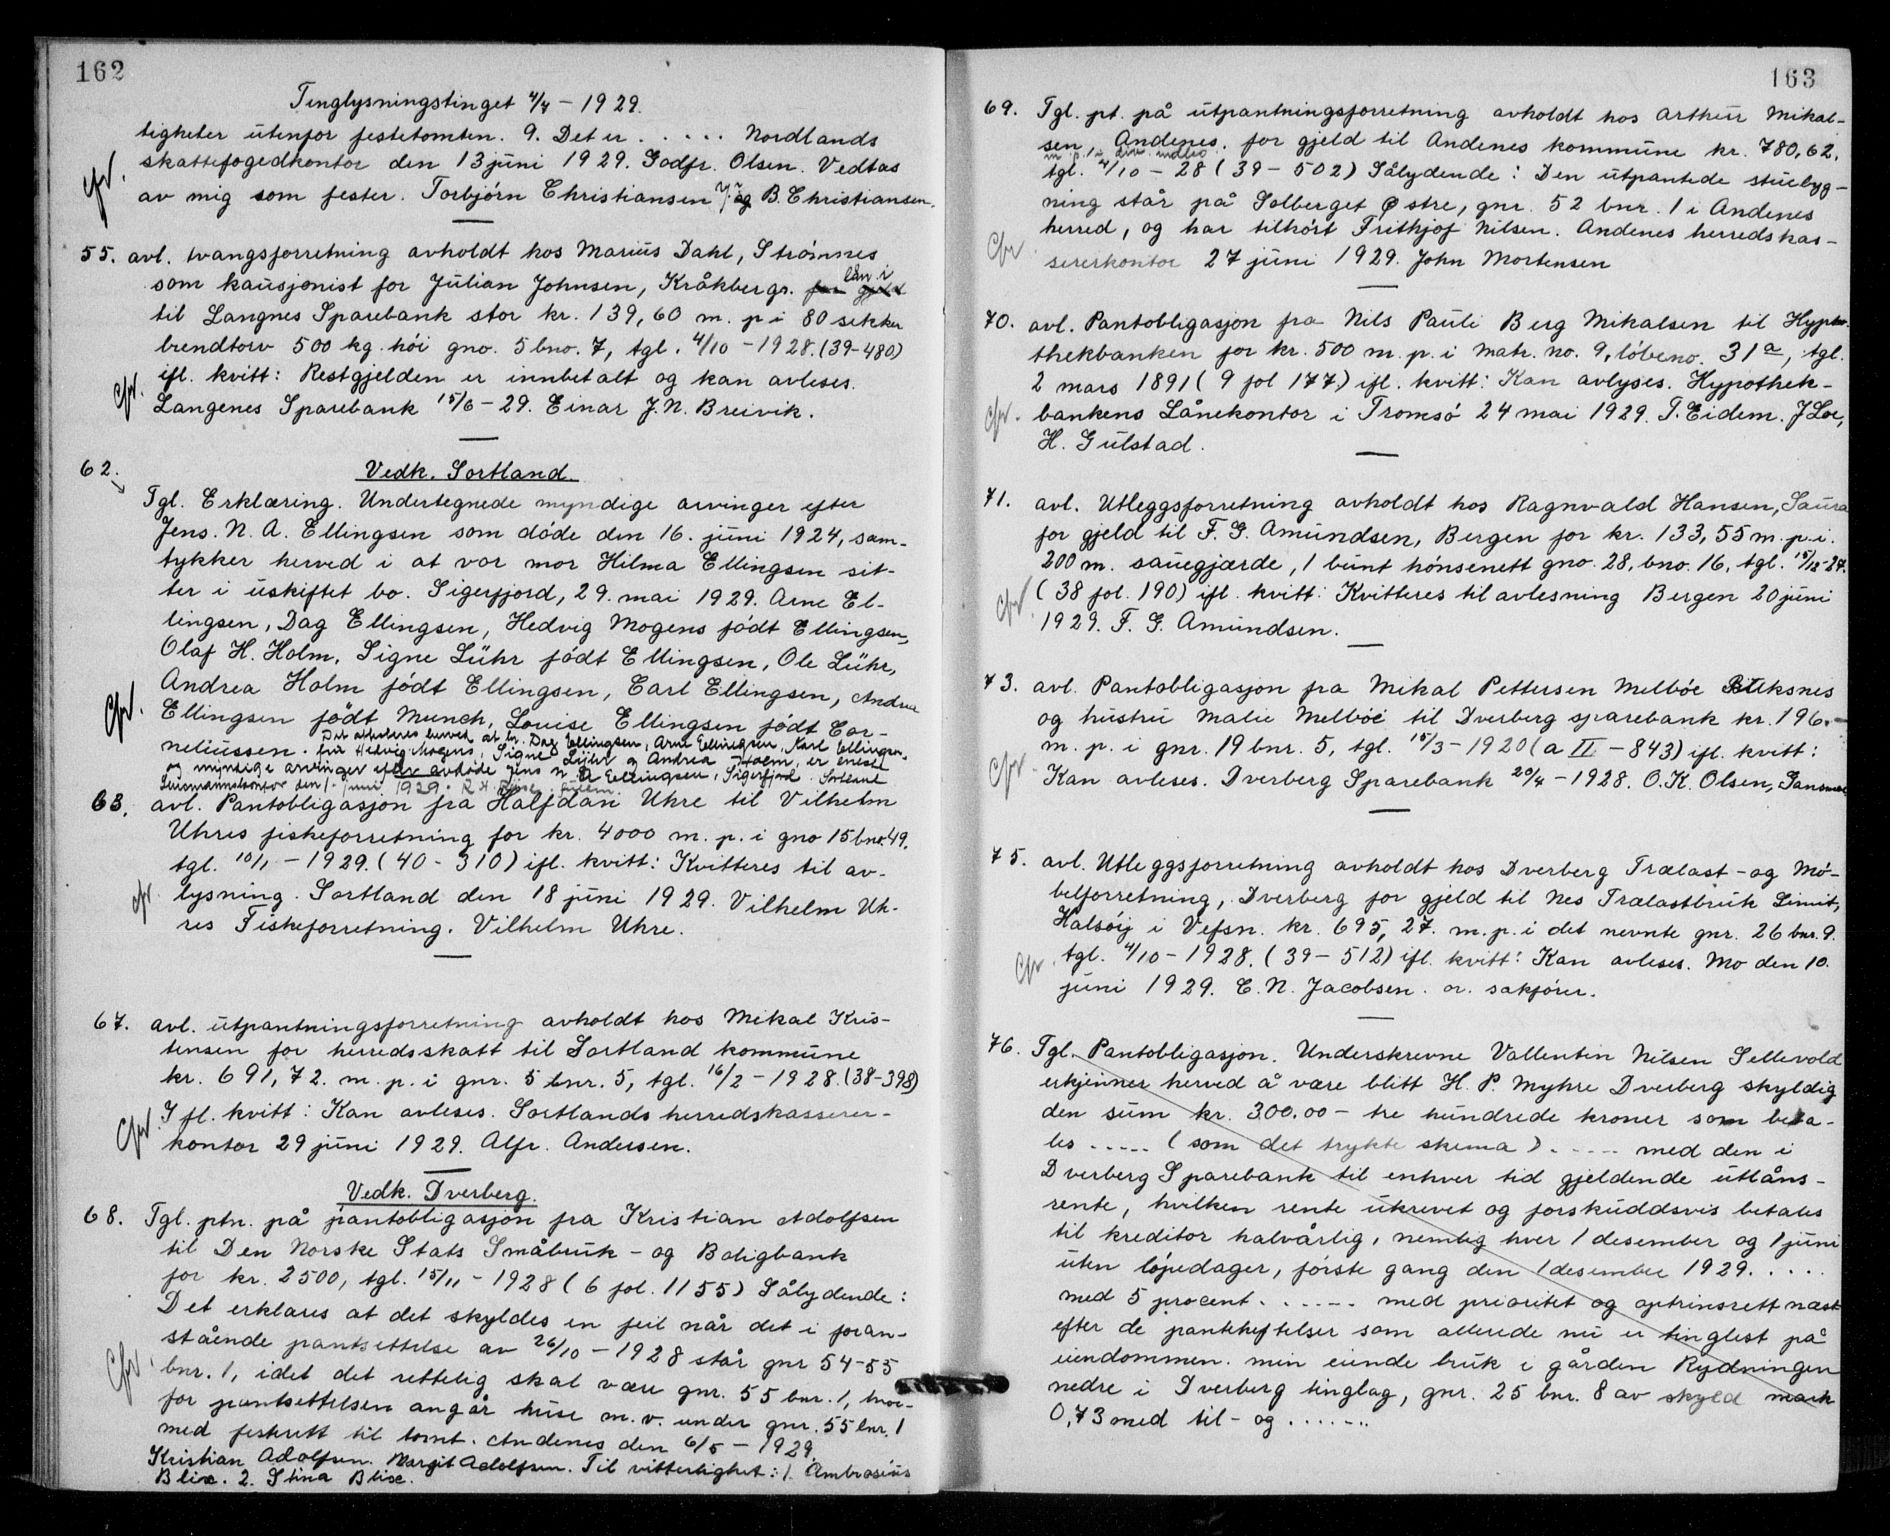 162
Tinglysningstinget 4/7 - 1929.
tigheter utenfor festetomten. 9. Det er . . . . . Nordlands
skattefogedkontor den 13 juni 1929. Godfr. Olsen. Vedtas
cfr. av mig som fester. Torbjørn Christiansen B. Christiansen.
55. avl. tvangsforretning avholdt hos Marius Dahl, Strømnes
som kausjonist for Julian Johnsen, Kråkbergr. for gjeld lån i
til Langnes Sparebank stor kr. 139,60 m. p i 80 sekker
brendtorv 500 kg. höi gno. 5 bno. 7, tgl. 4/10 - 1928. (39-480)
cfr. ifl. kvitt: Restgjelden er innbetalt og kan avleses.
Langenes Sparebank 15/6 - 29. Einar J. N. Breivik.
62. Vedk. Sortland.
Tgl. Erklæring. Undertegnede myndige arvinger efter
Jens. N. A. Ellingsen som döde den 16. juni 1924, sam-
tykker herved i at vor mor Hilma Ellingsen sit-
ter i uskiftet bo. Sigerfjord, 29. mai 1929. Arne El-
lingsen, Dag Ellingsen, Hedvig Mogens födt Ellingsen,
Olaf H. Holm, Signe Lühr födt Ellingsen, Ole Lühr,
cfr. Andrea Holm födt Ellingsen, Carl Ellingsen, Andrea
Ellingsen födt Munch, Louise Ellingsen födt Cor-
neliussen. Det attesteres herved at hr. Dag Ellingsen, Arne Ellingsen, Karl Ellingsen,
fru Hedvig Mogens, Signe Lühr og Andrea Holm, er eneste
og myndige arvinger efter avdöde Jens N. A. Ellingsen, Sigerfjord. Sortland
Lensmannskontor den 1. juni 1929.
63. avl. Pantobligasjon fra Halfdan Uhre til Vilhelm
Uhres fiskeforretning for kr. 4000 m. p. i gno 15 bno. 49.
tgl. 10/1 - 1929. (40 - 310) ifl. kvitt: Kvitteres til av-
cfr. lysning. Sortland den 18 juni 1929. Vilhelm Uh-
res Fiskeforretning. Vilhelm Uhre.
67. avl. utpantningsforretning avholdt hos Mikal Kris-
tensen for herredsskatt til Sortland kommune
kr. 691,72. m. p. i gnr. 5 bnr. 5, tgl. 16/2 - 1928. (38-398)
cfr. Ifl. kvitt: Kan avleses. Sortlands herredskasserer-
kontor 29 juni 1929. Alfr. Andersen.
Vedk. Dverberg.
68. Tgl. ptn. på pantobligasjon fra Kristian Adolfsen
til Den Norske Stats Småbruk - og Boligbank
for kr. 2500, tgl. 15/11 - 1928 (6 fol. 1155) Sålydende:
Det erklæres at det skyldes en feil når det i foran-
stående pantsettelse av 26/10 - 1928 står gnr 54-55
cfr. bnr. 1, idet det rettelig skal være gnr. 55 bnr. 1, hvor-
for pantsettelsen angår huse m. v. under gnr. 55 bnr. 1
med festrett til tomt. Andenes den 6/5 - 1929.
Kristian Adolfsen. Margit Adolfsen. Til vitterlighet: 1. Ambrosius
Blix. 2. Stina Blix.
163
69. Tgl. pt. på utpantningsforretning avholdt hos Arthur Mikal-
sen, Andenes, for gjeld til Andenes kommune kr. 780,62,
m. p. i div. indbo
tgl. 4/10 - 28 (39 - 502) Sålydende: Den utpantede stuebyg-
ning står på Solberget Østre, gnr. 52 bnr. 1 i Andenes
herred, og har tilhört Frithjof Nilsen. Andenes herredskas-
cfr sererkontor 27 juni 1929. John Mortensen
70. avl. Pantobligasjon fra Nils Pauli Berg Mikalsen til Hypo-
thekbanken for kr. 500 m. p. i matr. no. 9, löbeno. 31 a, tgl.
2 mars 1891 (9 fol 177) ifl. kvitt: Kan avlyses. Hypothek-
cfr. bankens Lånekontor i Tromsö 24 mai 1929. T. Eidem. J Loe,
H. Gulstad.
71. avl. Utleggsforretning avholdt hos Ragnvald Hansen, Saura
for gjeld til F. G. Amundsen, Bergen for kr. 133,55 m. p. i.
200 m. sauegjærde, 1 bunt hönsenett gno. 28. bno. 16, tgl. 15/12-27.
cfr. (38 fol. 190) ifl. kvitt: Kvitteres til avlesning Bergen 20 juni
1929. F. G. Amundsen.
73. avl. Pantobligasjon fra Mikal Pettersen Melböe Bleksnes
og hustru Malie Melböe til Dverberg sparebank kr. 196.-
m. p. i gnr. 19 bnr. 5, tgl. 15/3 - 1920 (a II - 843) ifl. kvitt:
cfr Kan avleses. Dverberg Sparebank 20/4 - 1928. O. K. Olsen,
75. avl. Utleggsforretning avholdt hos Dverberg Trælast - og Mö-
belforretning, Dverberg for gjeld til Nes Trælastbruk Limit,
Halsöy i Vefsn. kr. 695,27. m. p. i det nevnte gnr. 26 bnr. 9.
cfr. tgl. 4/10 - 1928. (39 - 512) ifl. kvitt: Kan avleses. Mo den 10.
juni 1929. C. N. Jacobsen. o. sakförer.
76. Tgl. Pantobligasjon. Underskrevne Vallentin Nilsen Sellevold
erkjenner herved å være blitt H. P. Myhre Dverberg skyldig
den sum kr. 300.00 - tre hundrede kroner som beta-
les ..... (som det trykte skema) ..... med den i
Dverberg Sparebank til enhver tid gjeldende utlåns-
rente, hvilken rente ukrevet og forskuddsvis betales
til kreditor halvårlig, nemlig hver 1 desember og 1 juni
uten löpedager, förste gang den 1 desember 1929. . . . .
med 5 procent. . . . . . med prioritet og optrinsrett næst
efter de pantheftelser som allerede nu er tinglest på
eiendommen. min eiende bruk i gården Rydningen
nedre i Dverberg tinglag, gnr. 25 bnr. 8 av skyld mark
0,73 med til - og . . . . . .